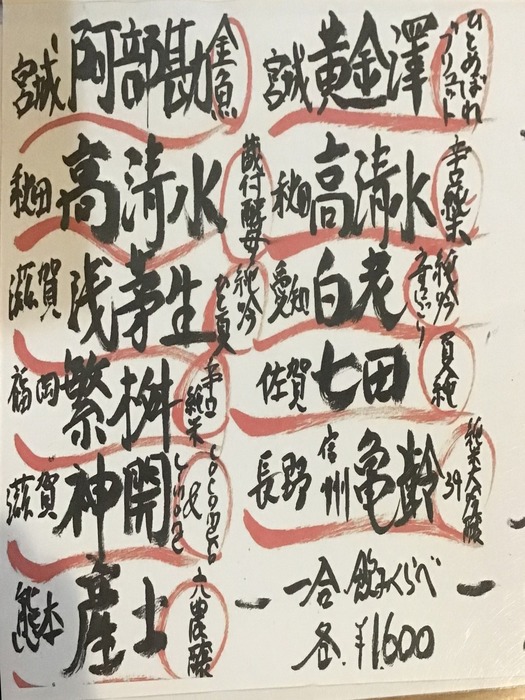 宮城 黄金澤 ひとめぼれ
秋田 高清水 辛口純米
愛知 白老 純吟 うすにごり
佐賀 七田 夏純
長野 信州亀齢 純米大吟醸 39
一合 飲みくらべ
各 ¥1600
宮城 阿部勘 金魚
秋田 高清水 蔵付酵母
滋賀 浅茅生 純吟 ひと夏
福岡 繁桝 辛口 純米
滋賀 神開
熊本 産土 六農醸